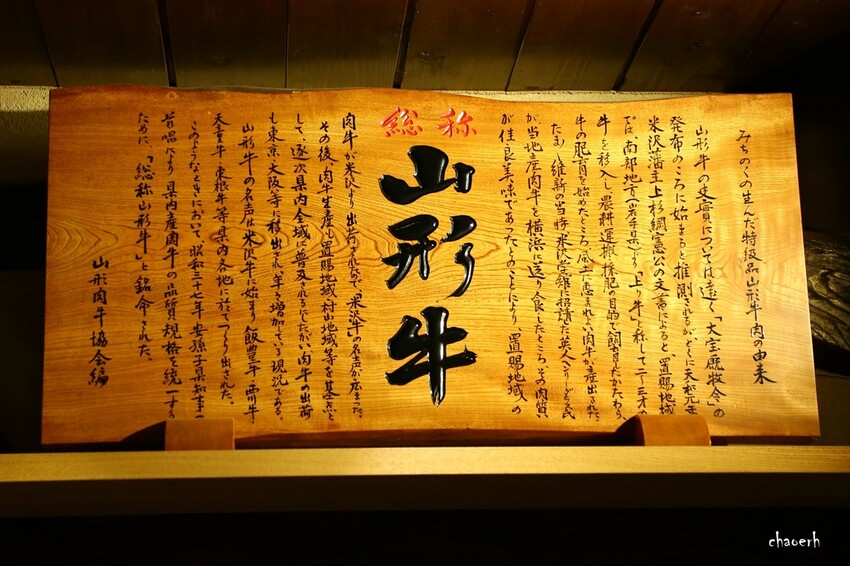 みちのくの生んだ特級品山形牛肉の由来
山形牛の生産については遠く「大宝厩牧令」の
発布のころに始まると推測されるが、とくに天和元年
米沢藩主上杉綱憲公の文書によると、置賜地域
では、南部地方（岩手県）より「上り牛」と称して二～三才の
牛を移入し、農耕、運搬、採肥の目的で飼育するかたわら
牛の肥育を始めたところ、風土に恵まれよい肉牛が産出された
たまたま、維新の当時、米沢学館に招請した英人ヘンリーダラス氏
が当地産肉牛を横浜に送り食したところ、その肉質
が佳良美味であったとのことにより、置賜地域の
総称
山形牛
肉牛が米沢より出荷されたので「米沢牛」の名声が広まった。
その後、肉牛生産も置賜地域、村山地域等を基点と
して、逐次県内全域に普及されるにしたがい肉牛の出荷
も東京、大阪等に移出され、年々増加している現況である。
山形牛の名声は米沢牛に始まり飯豊牛、西川牛、
天童牛、東根牛等、県内各地に於てつくり出された。
このようなときにおいて昭和三十七年、安孫子県知事の
首唱により県内産肉牛の品質規格を統一する
ために、「総称山形牛」と銘命された。
山形肉牛協会編
chaoerh